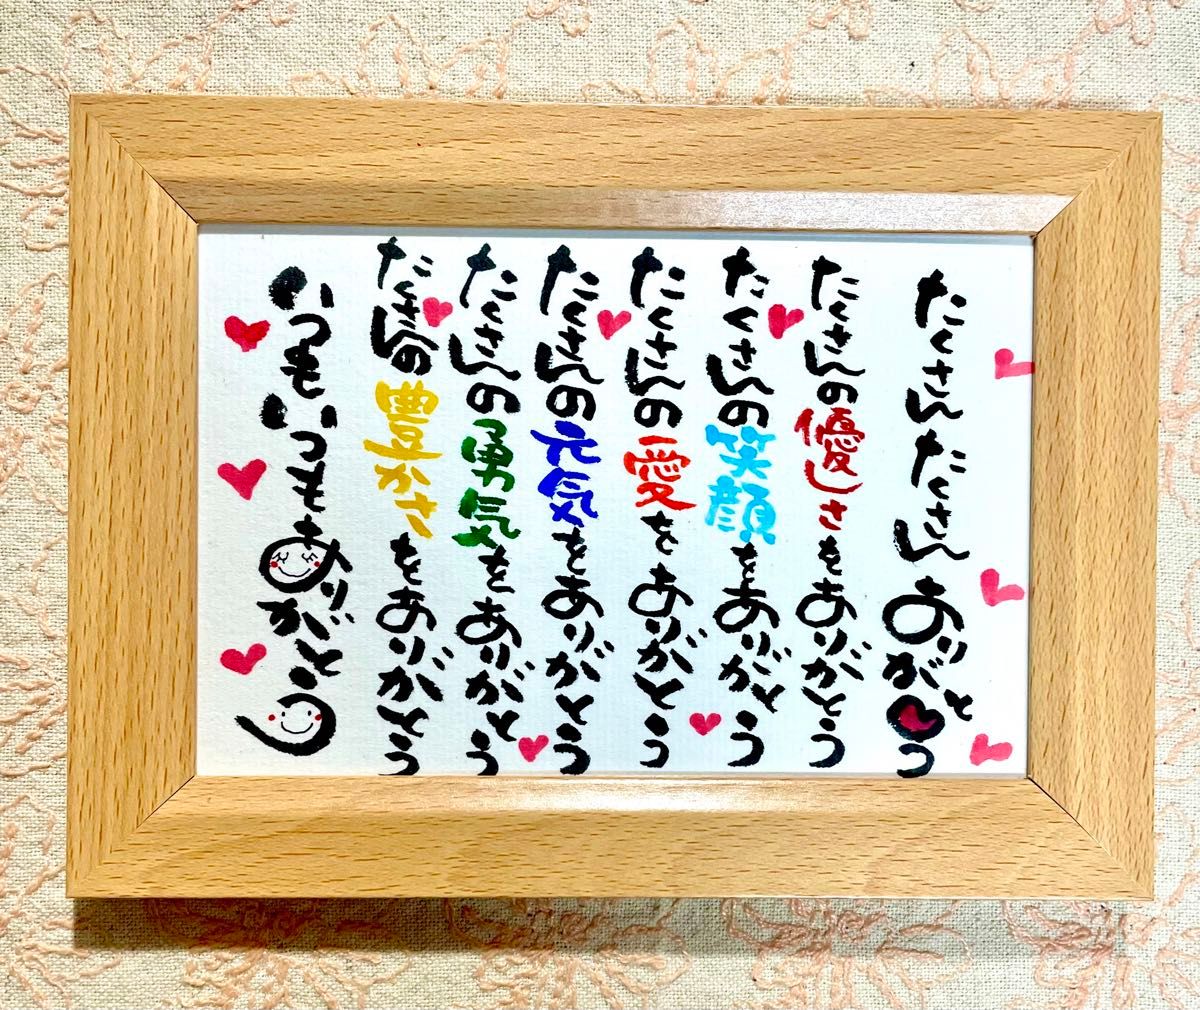 たくさんたくさんありがとう
たくさんの優しさをありがとう
たくさんの笑顔をありがとう
たくさんの愛をありがとう
たくさんの元気をありがとう
たくさんの勇気をありがとう
たくさんの豊かさをありがとう
いつもいつもありがとう